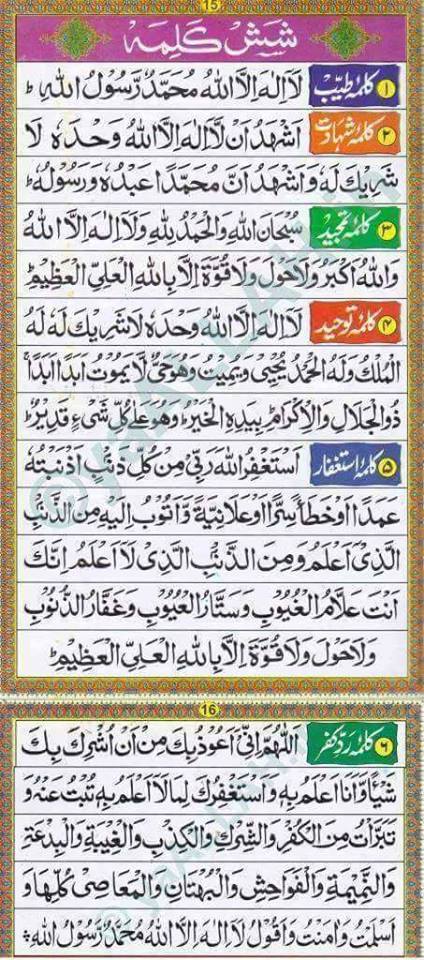 15
شش کلمہ
۱ کلمۂ طیّب لَآ اِلٰہَ اِلَّا اللہُ مُحَمَّدٌ رَّسُوْلُ اللہِ ؕ
۲ کلمۂ شہادت اَشْھَدُ اَنْ لَّآ اِلٰہَ اِلَّا اللہُ وَحْدَہٗ لَا
شَرِیْکَ لَہٗ وَاَشْھَدُ اَنَّ مُحَمَّدًا عَبْدُہٗ وَرَسُوْلُہٗ ؕ
۳ کلمۂ تمجید سُبْحَانَ اللہِ وَالْحَمْدُ لِلّٰہِ وَلَآ اِلٰہَ اِلَّا اللہُ
وَاللہُ اَکْبَرُ وَلَا حَوْلَ وَلَا قُوَّۃَ اِلَّا بِاللہِ الْعَلِیِّ الْعَظِیْمِ ؕ
۴ کلمۂ توحید لَآ اِلٰہَ اِلَّا اللہُ وَحْدَہٗ لَا شَرِیْکَ لَہٗ لَہُ
الْمُلْکُ وَلَہُ الْحَمْدُ یُحْیٖ وَیُمِیْتُ وَھُوَ حَیٌّ لَّا یَمُوْتُ اَبَدًا اَبَدًا ؕ
ذُوالْجَلَالِ وَالْاِکْرَامِ ؕ بِیَدِہِ الْخَیْرُ ؕ وَھُوَ عَلٰی کُلِّ شَیْءٍ قَدِیْرٌ ؕ
۵ کلمۂ استغفار اَسْتَغْفِرُ اللہَ رَبِّیْ مِنْ کُلِّ ذَنْۢبٍ اَذْنَبْتُہٗ
عَمَدًا اَوْ خَطَأً سِرًّا اَوْ عَلَانِیَۃً وَّاَتُوْبُ اِلَیْہِ مِنَ الذَّنْۢبِ
الَّذِیْٓ اَعْلَمُ وَمِنَ الذَّنْۢبِ الَّذِیْ لَآ اَعْلَمُ اِنَّکَ
اَنْتَ عَلَّامُ الْغُیُوْبِ وَسَتَّارُ الْعُیُوْبِ وَغَفَّارُ الذُّنُوْبِ
وَلَا حَوْلَ وَلَا قُوَّۃَ اِلَّا بِاللہِ الْعَلِیِّ الْعَظِیْمِ ؕ
16
۶ کلمۂ ردّ کفر اَللّٰھُمَّ اِنِّیْٓ اَعُوْذُ بِکَ مِنْ اَنْ اُشْرِکَ بِکَ
شَیْأً وَّاَنَا اَعْلَمُ بِہٖ وَاَسْتَغْفِرُکَ لِمَا لَآ اَعْلَمُ بِہٖ تُبْتُ عَنْہُ وَ
تَبَرَّأْتُ مِنَ الْکُفْرِ وَالشِّرْکِ وَالْکِذْبِ وَالْغِیْبَۃِ وَالْبِدْعَۃِ
وَالنَّمِیْمَۃِ وَالْفَوَاحِشِ وَالْبُھْتَانِ وَالْمَعَاصِیْ کُلِّھَا وَ
اَسْلَمْتُ وَاٰمَنْتُ وَاَقُوْلُ لَآ اِلٰہَ اِلَّا اللہُ مُحَمَّدٌ رَّسُوْلُ اللہِ ؕ